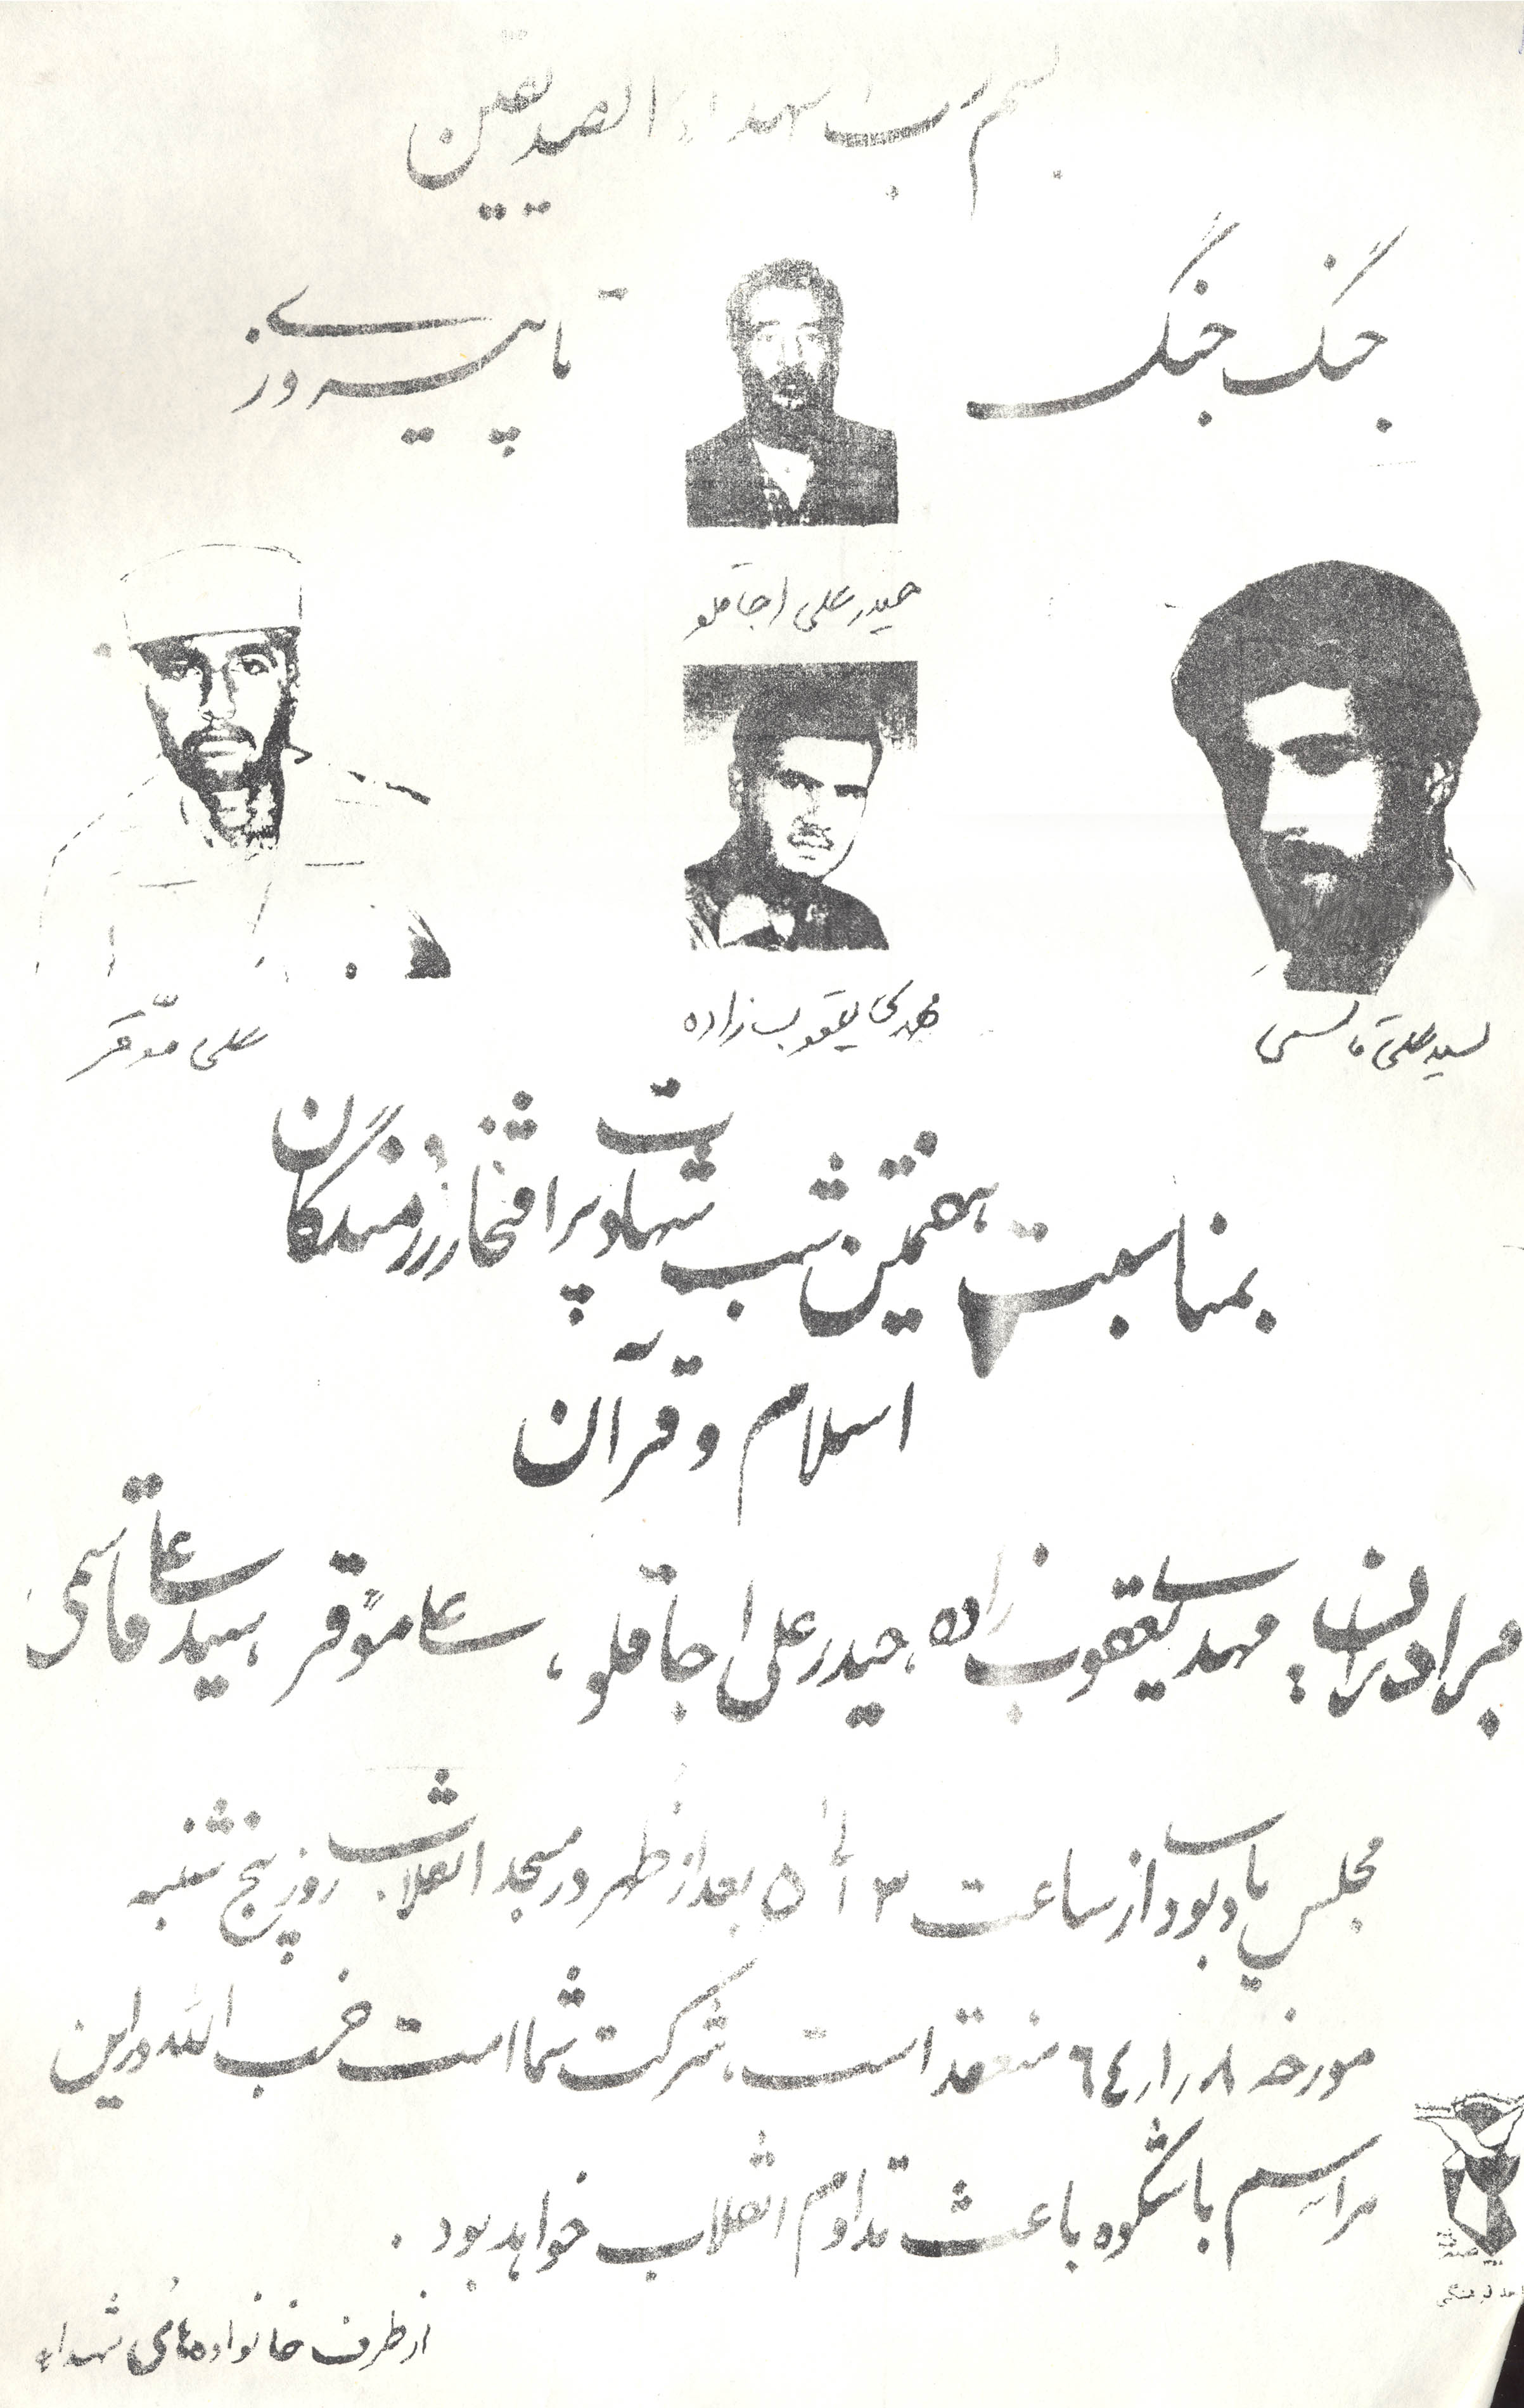 بسم رب الشهداء الصدیقین
جنگ جنگ تا پیروزی
حیدر علی اجاقلو
سید علی قاسمی
مهدی یعقوب زاده
علی موّقر
بمناسبت هفتمین شب شهادت پرافتخار رزمندگان
اسلام و قرآن
برادران پاسدار: مهدی یعقوب زاده، حیدر علی اجاقلو، علی موًقر، سید علی قاسمی
مجلس یادبود از ساعت ۳ الی ۵ بعد از ظهر در مسجد انقلاب روز پنج شنبه
مورخه ۸ر۱ر٦٤ منعقد است، شرکت شما امت حزب الله در این
مراسم باشکوه باعث تداوم انقلاب خواهد بود.
از طرف خانواده های شهداء